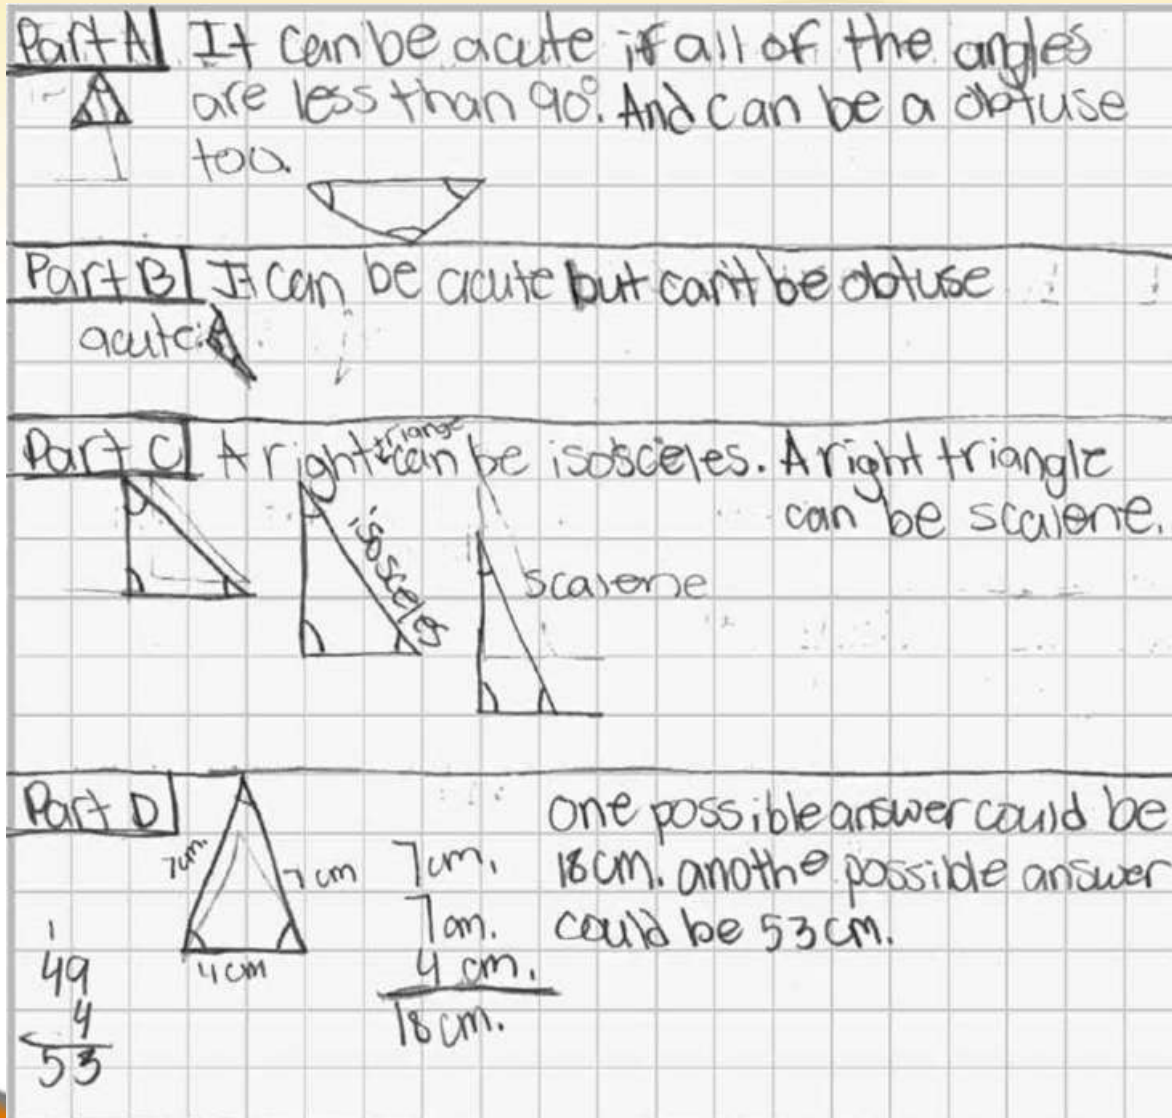 Part A It can be acute if all of the angles
are less than 90°. And can be a obtuse
too.
Part B It can be acute but can't be obtuse
acute:
Part C A right triangle can be isosceles. A right triangle
can be scalene.
isosceles
scalene
Part D one possible answer could be
18 cm. anothe possible answer
could be 53 cm.
7cm.
7 cm
4 cm
7cm.
7cm.
4 cm.
18 cm.
1
49
4
53